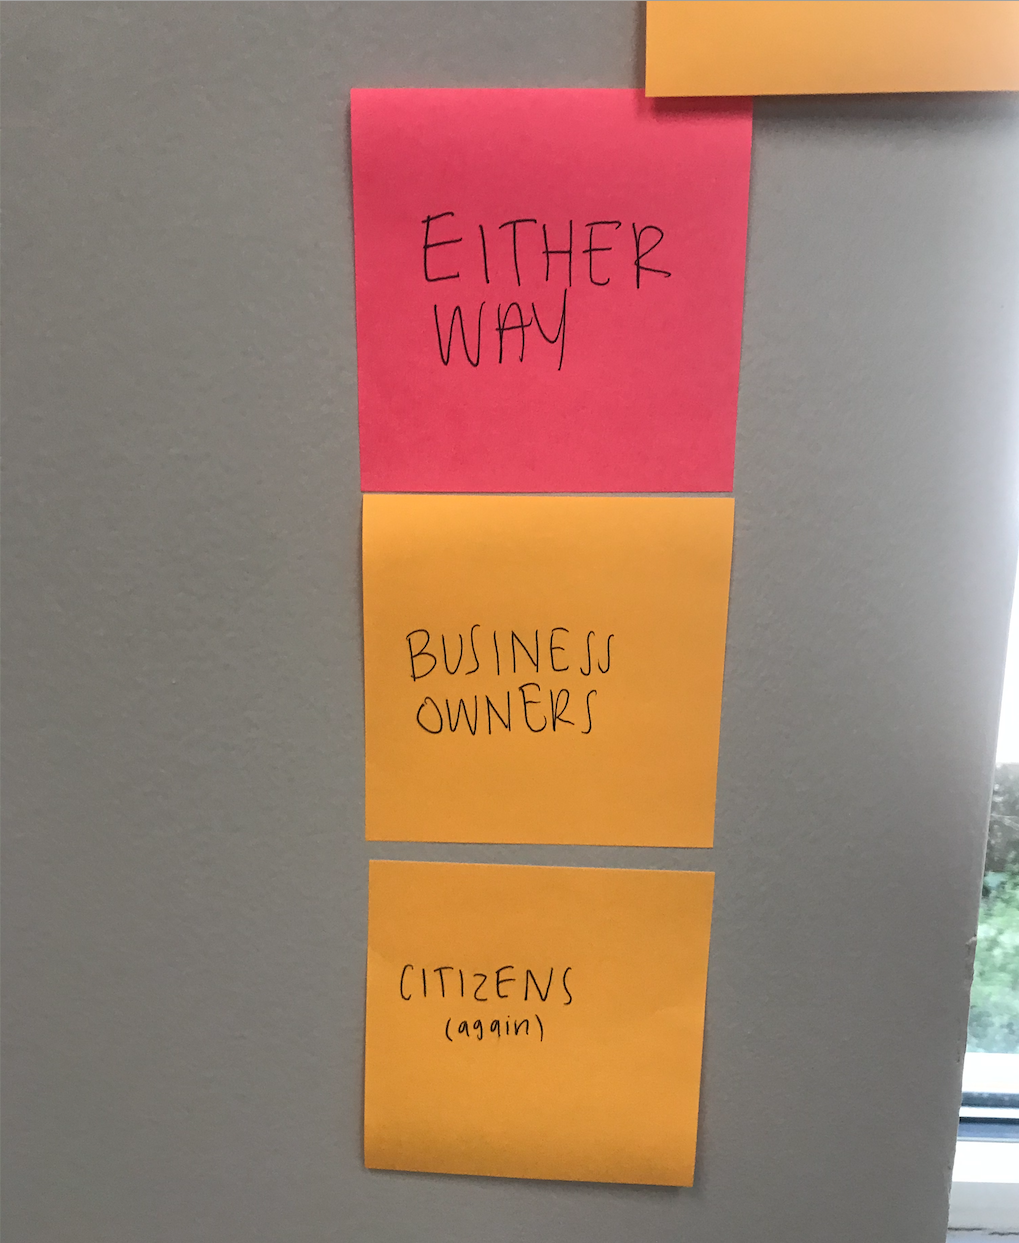 EITHER
WAY
BUSINESS
OWNERS
CITIZENS
(again)